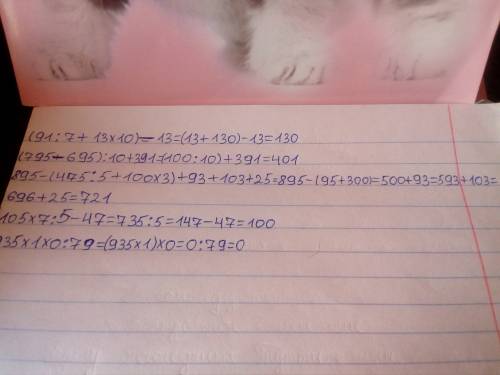 (91:7+13x10)-13=(13+130)-13=130
(795-695):10+391=(100:10)+391=401
895-(475:5+100x3)+93+103+25=895-(95+300)=500+93=593+103=
696+25=721
105x7:5-47=735:5=147-47=100
935x1x0:79=(935x1)x0=0:79=0